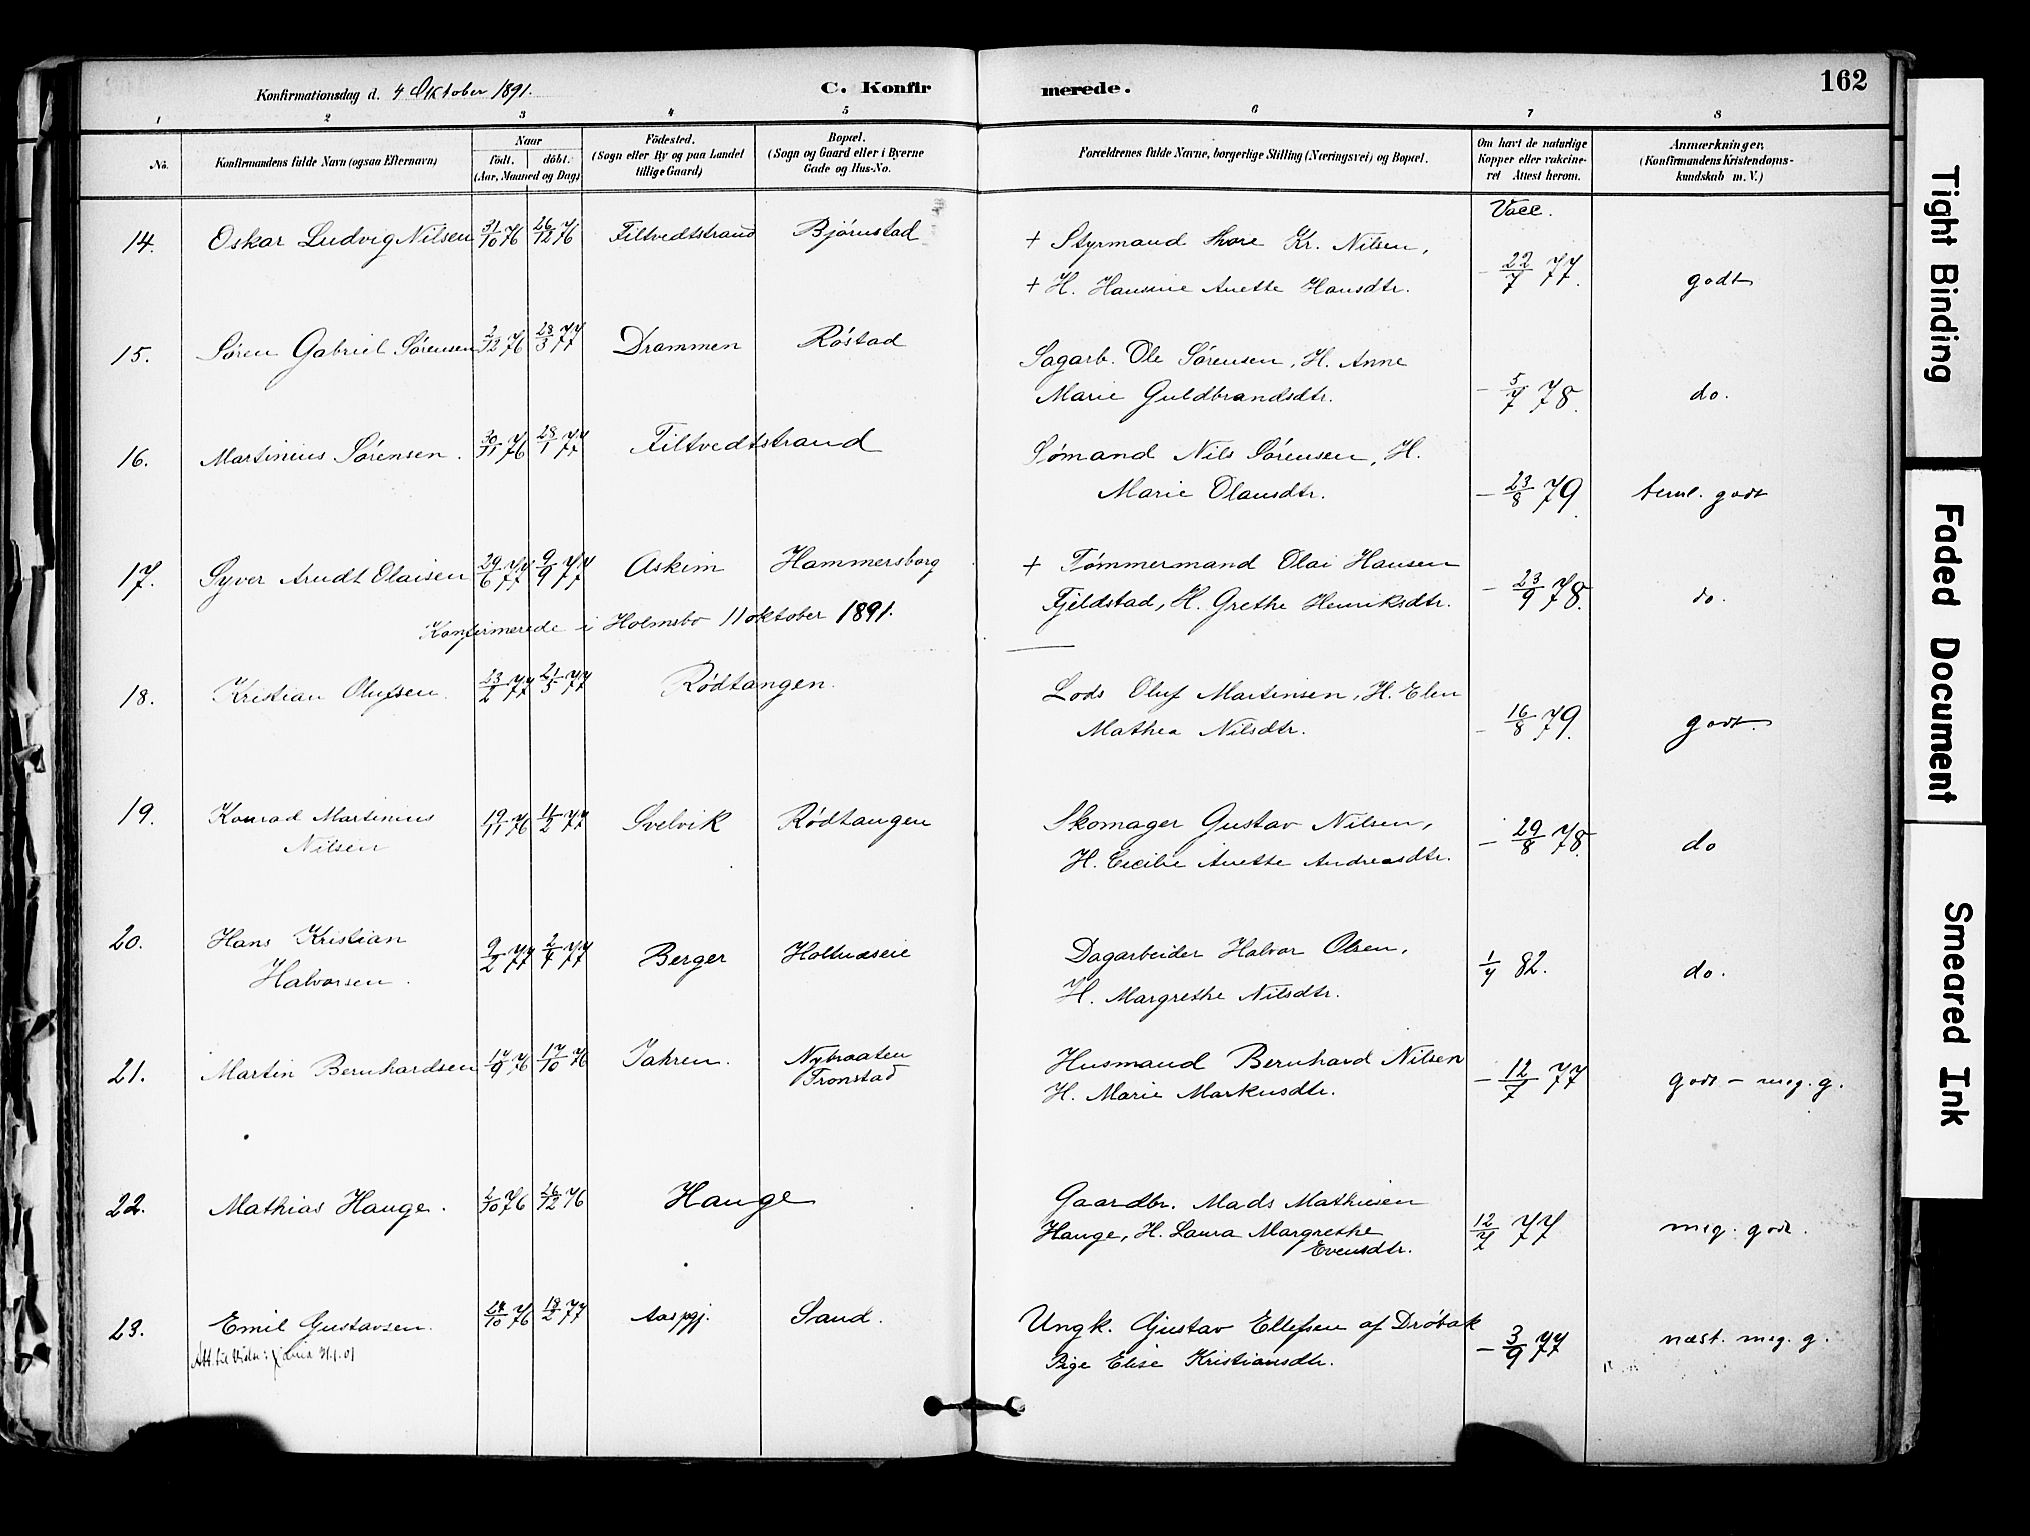 Konfirmationsdag d. 4 Oktober 1891. C. Konfirmerede. 162
1 2 3 4 5 6 7 8
No. Konfirmandens fulde Navn (ogsaa Efternavn) Naar født. døbt. (Aar, Maaned og Dag) Födested. (Sogn eller By og paa Landet tillige Gaard) Bopæl. (Sogn og Gaard eller i Byerne Gade og Hus-No. Forældrenes fulde Navne, borgerlige Stilling (Næringsvei) og Bopæl. Om havt de naturlige Kopper eller vakcineret Attest herom. Anmærkninger. (Konfirmandens Kristendomskundskab m. V.)
Vacc.
14. Oskar Ludvig Nilsen 31/10 76 26/12 76 Filtvedtstrand Bjørnstad + Styrmand Thore Kr. Nilsen,
+ H. Hansine Anette Hansdtr. – 22/7 77. godt
15. Søren Gabriel Sørensen 2/12 76 28/3 77 Drammen Røstad Sagarb. Ole Sørensen, H. Anne
Marie Guldbrandsdtr. – 5/7 78. do.
16. Martinius Sørensen. 30/11 76 28/1 77 Filtvedtstrand Sømand Nils Sørensen, H.
Marie Olausdtr. – 23/8 79. teml. godt
17. Syver Arndt Olaisen 29/6 77 9/9 77 Askim Hammersborg + Tømmermand Olai Hansen
Fjeldstad, H. Grethe Henriksdtr. – 23/9 78. do.
Konfirmerede i Holmsbo 11 oktober 1891.
18. Kristian Olufsen. 23/2 77 21/5 77 Rødtangen. Lods Oluf Martinsen, H. Elen
Mathea Nilsdtr. – 16/8 79. godt.
19. Konrad Martinius
Nilsen 19/11 76 11/2 77 Svelvik Rødtangen Skomager Gustav Nilsen,
H. Cecilie Anette Andreasdtr. – 29/8 78. do
20. Hans Kristian
Halvorsen. 9/2 77 2/4 77 Berger Holtnæseie Dagarbeider Halvor Olsen,
H. Margrethe Nilsdtr. 1/7 82. do.
21. Martin Bernhardsen 17/9 76 17/10 76 Jahren. Nybraaten
Tronstad Husmand Bernhard Nilsen
H. Marie Markusdtr. – 12/7 77 godt – meg. g.
22. Mathias Hauge. 2/10 76 26/12 76 Hauge Gaardbr. Mads Mathiesen
Hauge, H. Laura Margrethe
Evensdtr. 12/7 77 meg. godt.
23. Emil Gustavsen. 24/10 76 18/2 77 Aas pgj. Sand. Ungk. Gustav Ellefsen af Drøbak
Pige Elise Kristiansdtr. – 3/9 77 næst. meg. g.
Att. til 31.1.01
Tight Binding
Faded Document
Smeared Ink